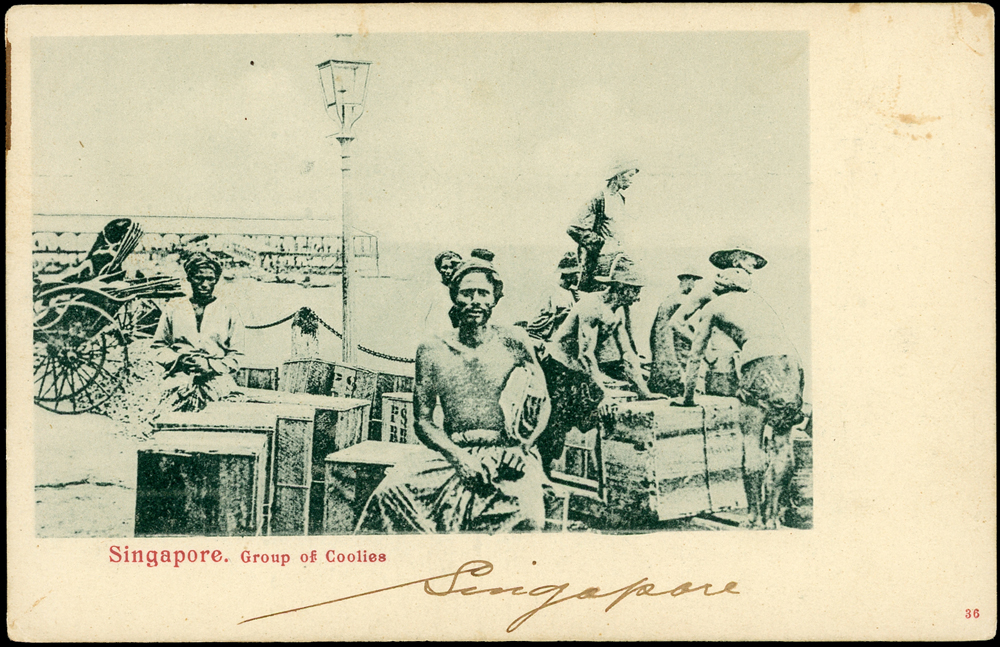 Singapore. Group of Coolies
Singapore
36